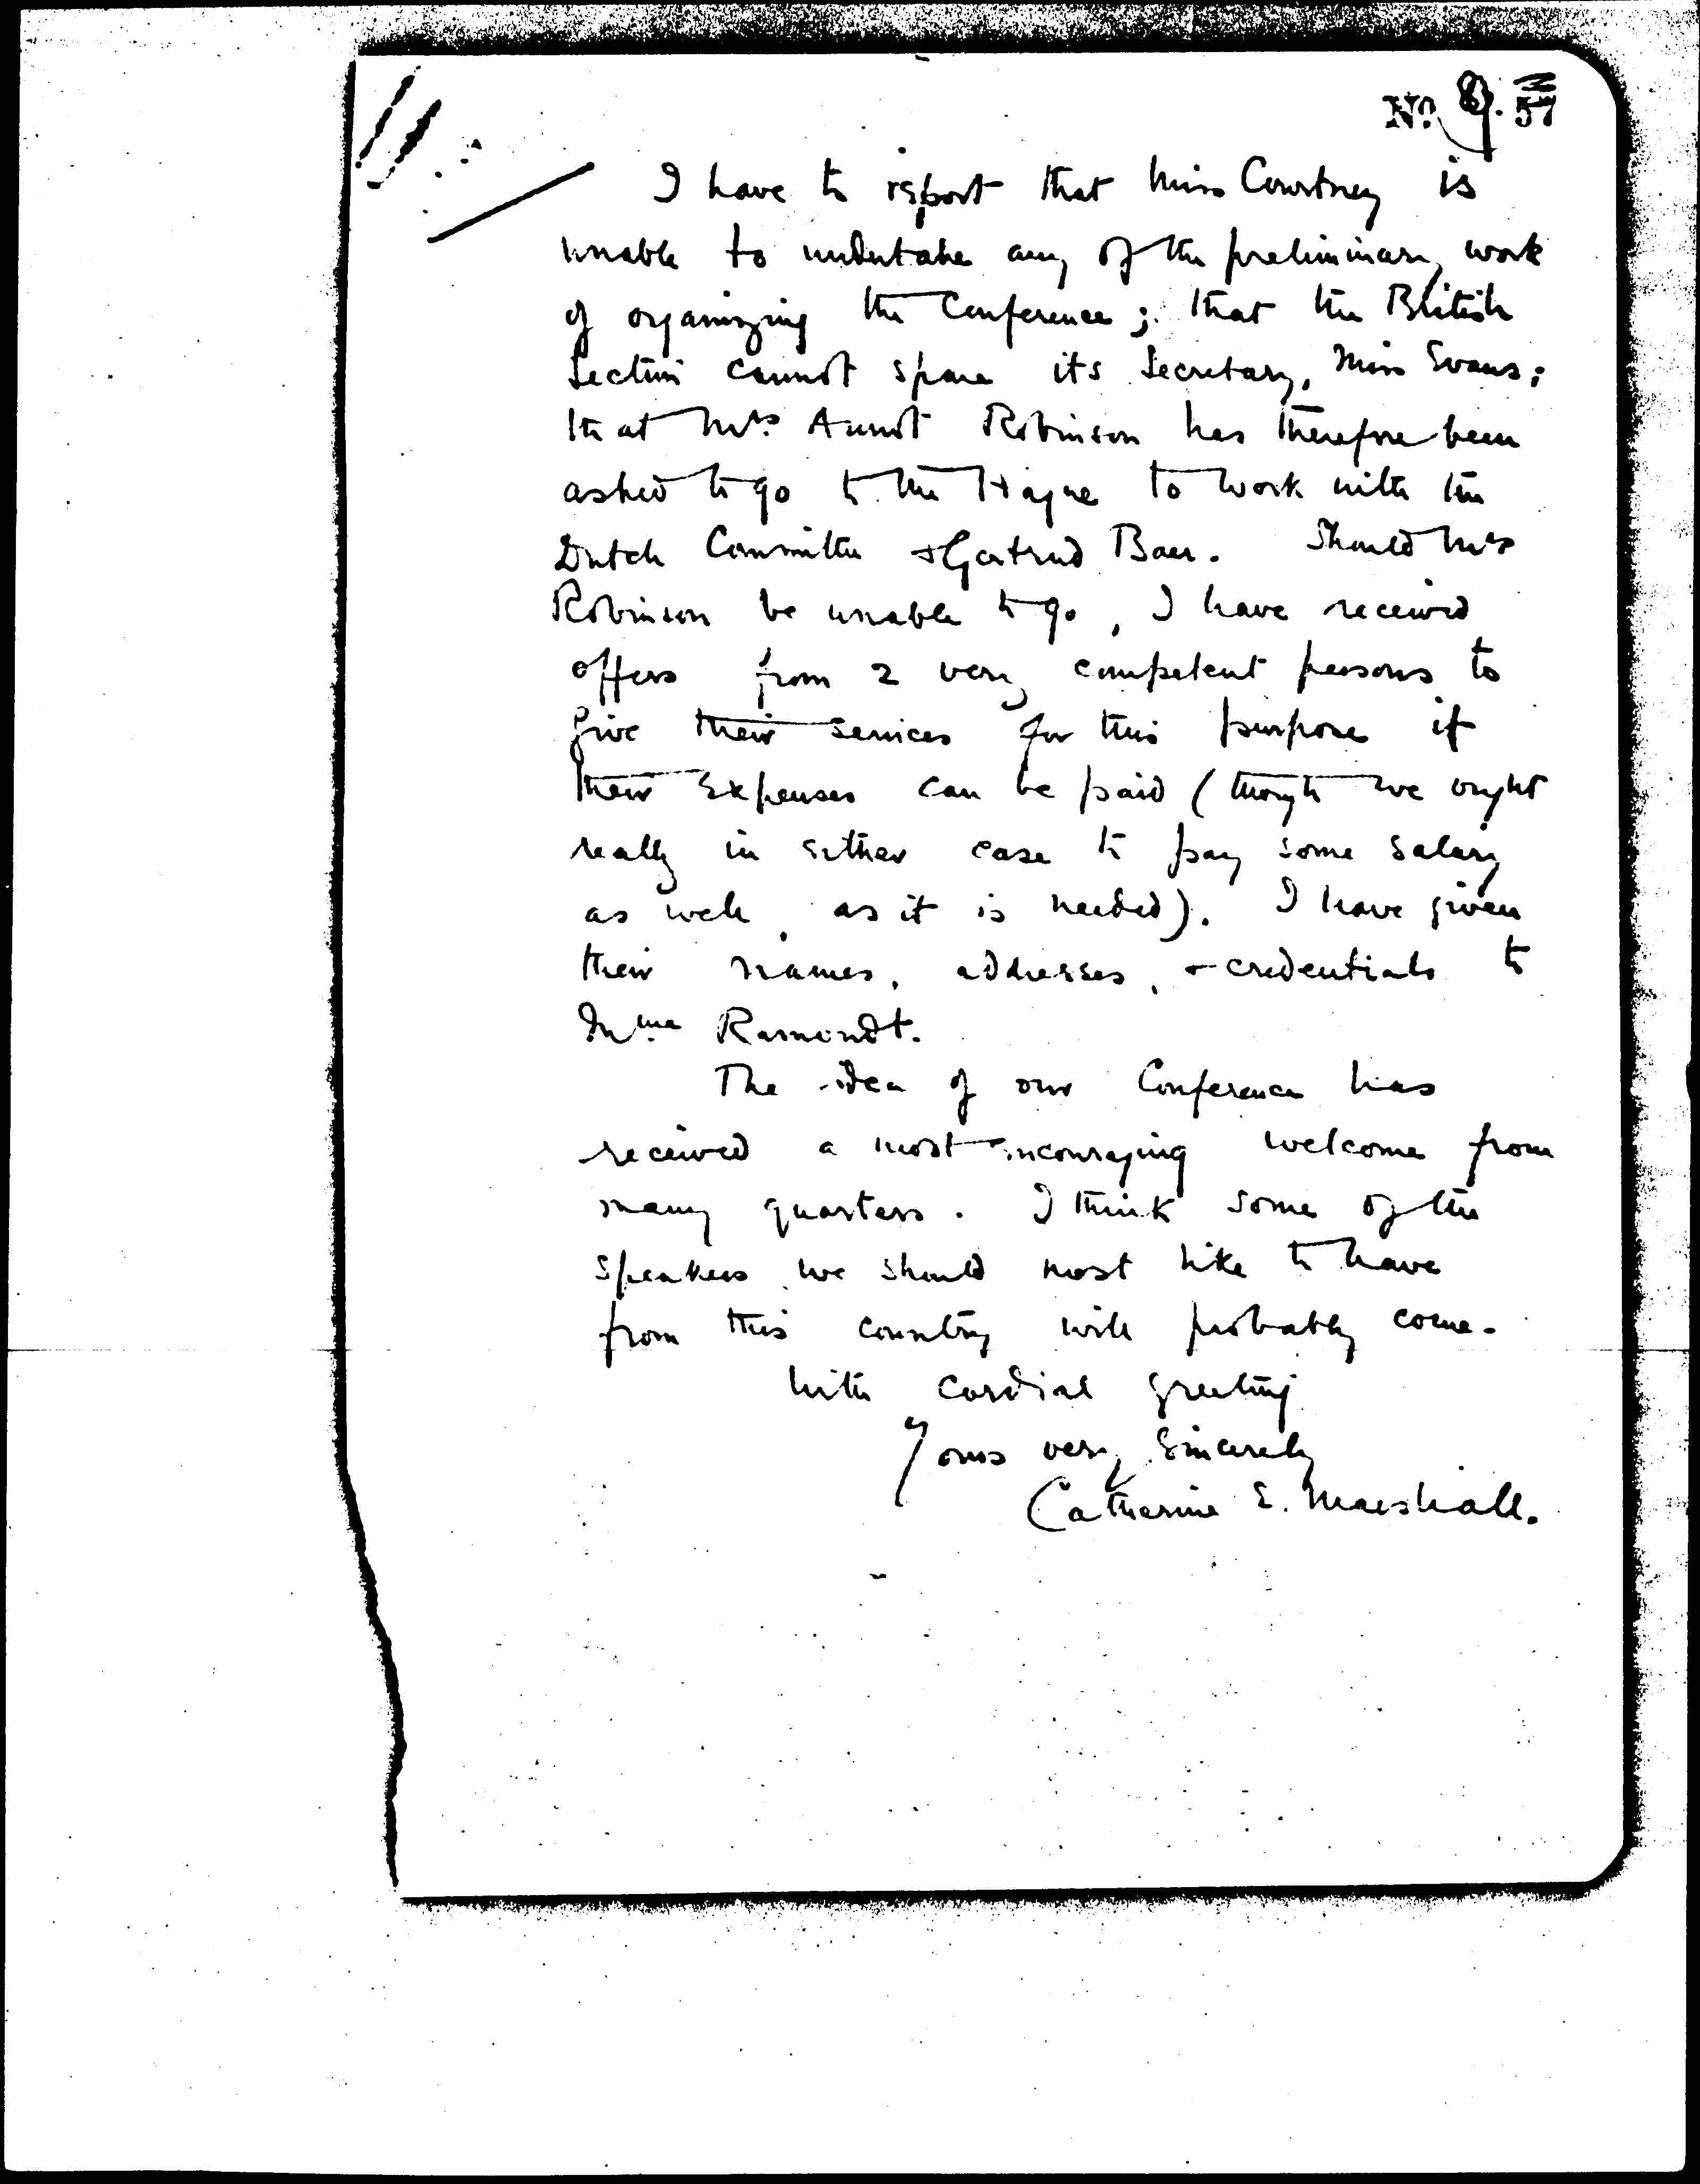 No. 9. 57
I have to report that Miss Courtney is
unable to undertake any of the preliminary work
of organizing the Conference; that the British
Section cannot spare its Secretary, Miss Evans;
that Mrs. Annot Robinson has therefore been
asked to go to the Hague to work with the
Dutch Committee & Gertrud Baer. Should Mrs
Robinson be unable to go, I have received
offers from 2 very competent persons to
give their services for this purpose if
their expenses can be paid (though we ought
really in either case to pay some salary
as well, as it is needed). I have given
their names, addresses, & credentials to
Mme Ramondt.
The idea of our Conference has
received a most encouraging welcome from
many quarters. I think some of the
speakers we should most like to have
from this country will probably come.
With cordial greeting
Yours very sincerely
Catherine E. Marshall.